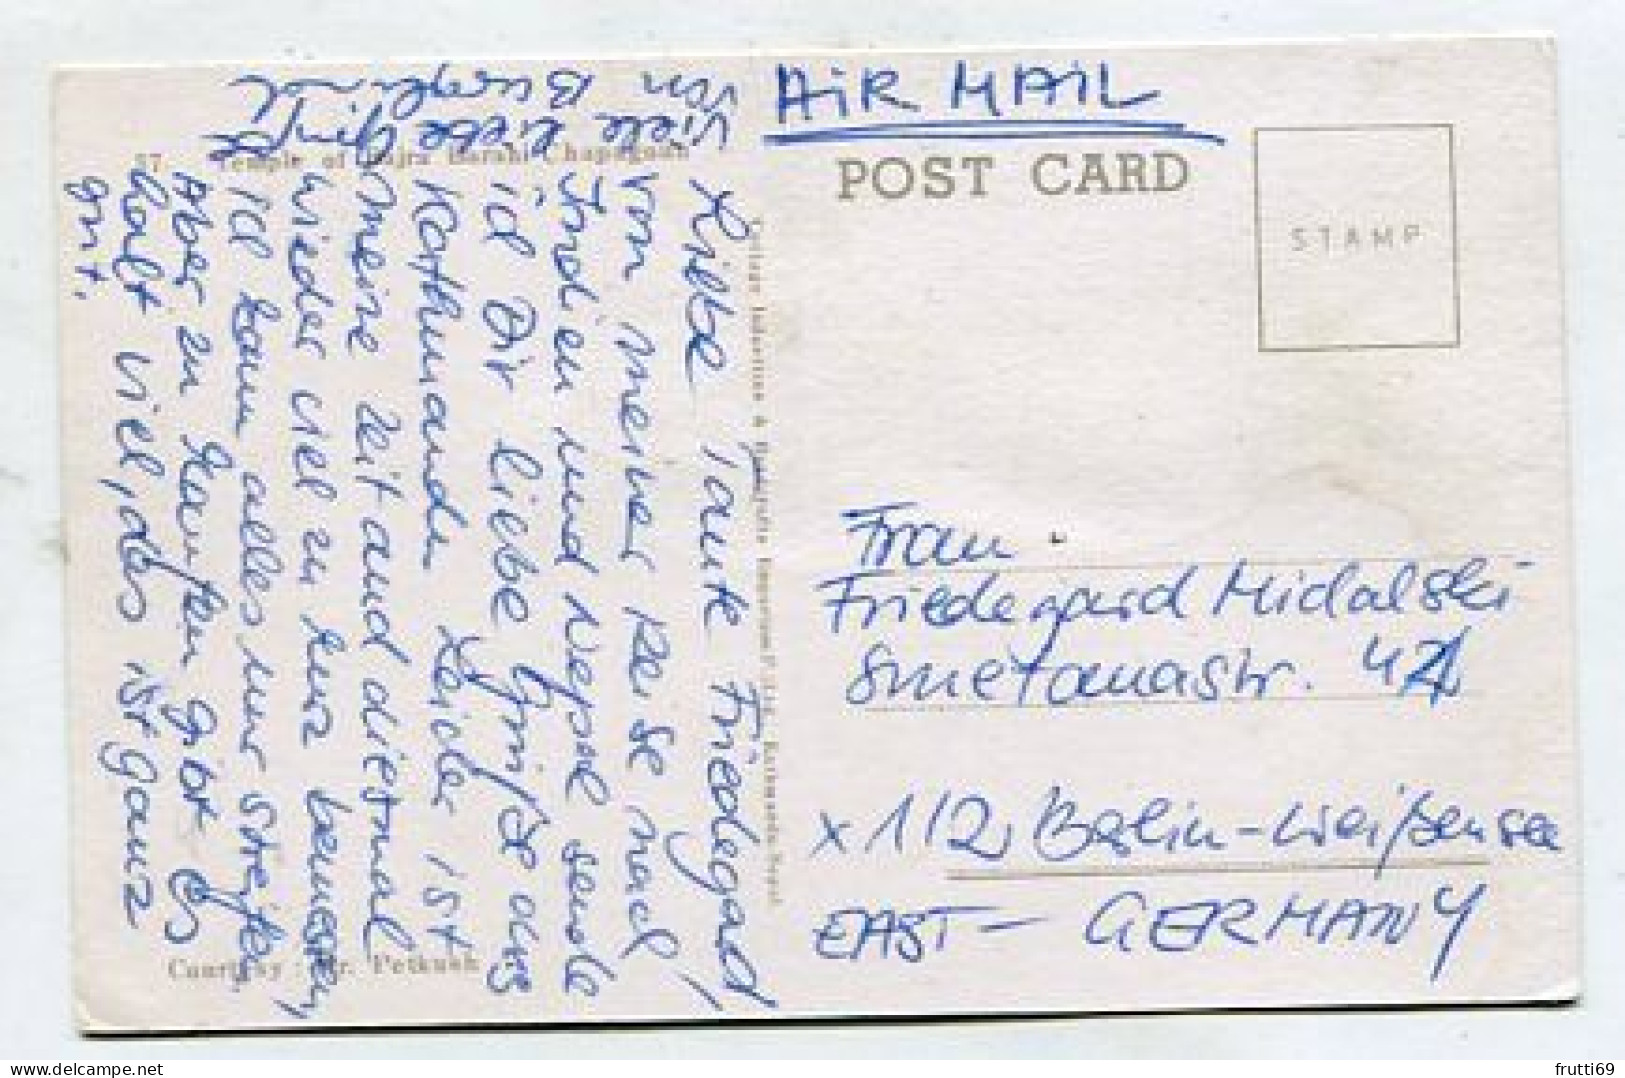 AiR MAIL
POST CARD
STAMP
57. Temple of Bajra Barahi Chapagaon
Liebe Tante Friedegard!
Von meiner Reise nach
Indien und Nepal sende
ich Dir liebe Grüße aus
Kathmandu. Leider ist
Meine Zeit auch diesmal
wieder viel zu kurz bemessen,
Ich kann alles nur streifen
Aber zu kaufen gibt es
halt viel, das ist ganz
gut.
Viele liebe Grüße
von Burglind
Frau
Friedegard Midalski
Smetanastr. 42
x 112 Berlin-Weißensee
EAST- GERMANY
Cottage Industries & Handicrafts Emporium Kathmandu Nepal
Courtesy : Mr. Petkush
frutti69